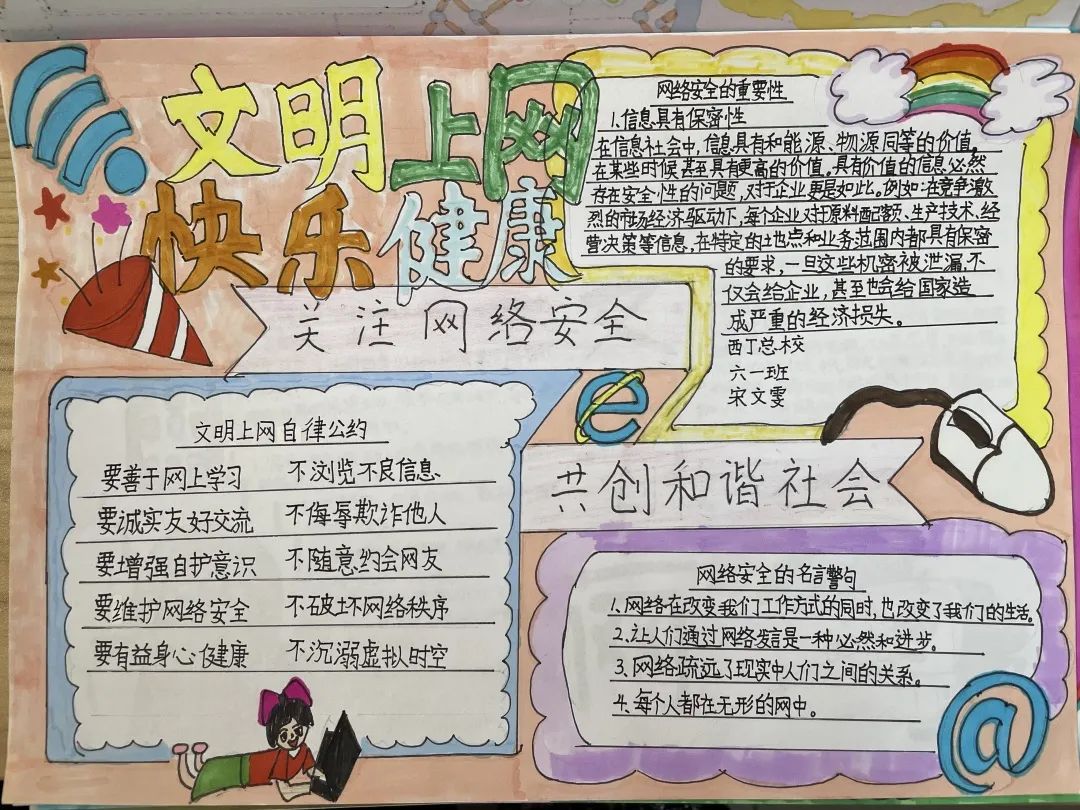 文明上网
快乐健康
关注网络安全
网络安全的重要性
1.信息具有保密性
在信息社会中,信息具有和能源、物源同等的价值,
在某些时候甚至具有更高的价值。具有价值的信息必然
存在安全性的问题,对于企业更是如此。例如:在竞争激
烈的市场经济驱动下,每个企业对于原料配额、生产技术、经
营决策等信息,在特定的地点和业务范围内都具有保密
的要求,一旦这些机密被泄漏,不
仅会给企业,甚至也会给国家造
成严重的经济损失。
西丁总校
六一班
宋文雯
文明上网自律公约
要善于网上学习 不浏览不良信息
要诚实友好交流 不侮辱欺诈他人
要增强自护意识 不随意约会网友
要维护网络安全 不破坏网络秩序
要有益身心健康 不沉溺虚拟时空
共创和谐社会
网络安全的名言警句
1.网络在改变我们工作方式的同时,也改变了我们的生活。
2.让人们通过网络发言是一种必然和进步。
3.网络疏远了现实中人们之间的关系。
4.每个人都在无形的网中。
@